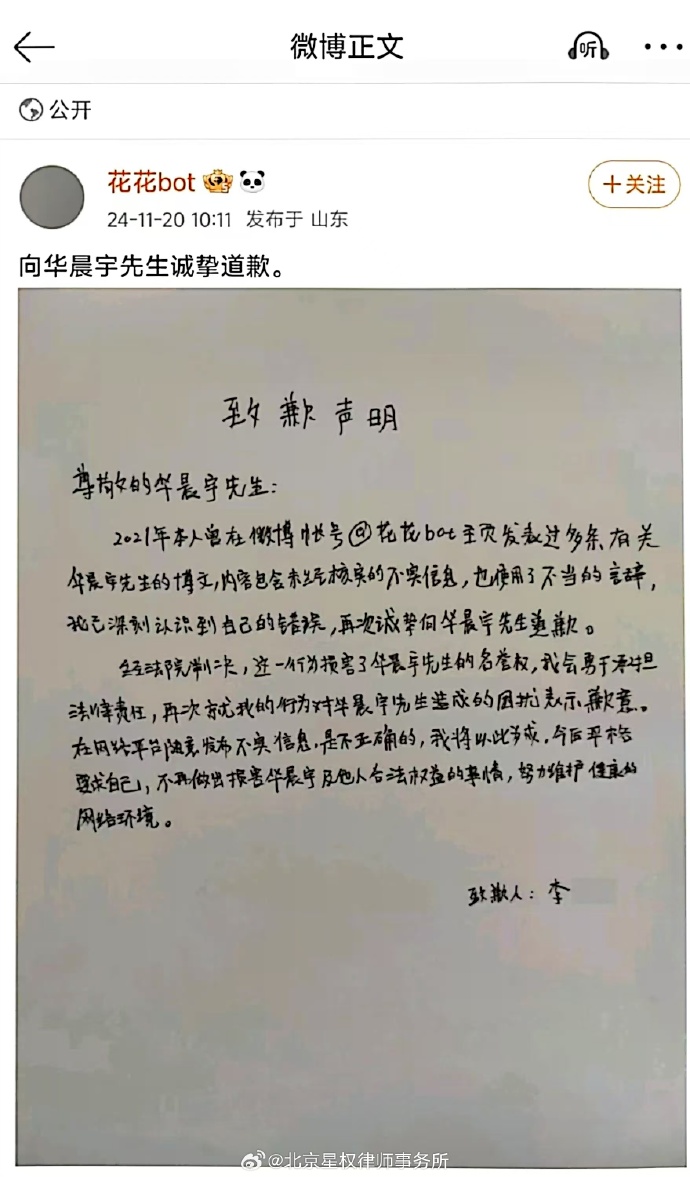 微博正文
听
公开
花花bot
+关注
24-11-20 10:11 发布于 山东
向华晨宇先生诚挚道歉。
致歉声明
尊敬的华晨宇先生：
2021年本人曾在微博帐号@花花bot主页发表过多条有关
华晨宇先生的博文，内容包含未经核实的不实信息，也使用了不当的言辞，
我已深刻认识到自己的错误，再次诚挚向华晨宇先生道歉。
经法院判决，这一行为损害了华晨宇先生的名誉权，我会勇于承担
法律责任，再次就我的行为对华晨宇先生造成的困扰表示歉意。
在网络平台随意发布不实信息，是不正确的，我将以此为戒，今后严格
要求自己，不再做出损害华晨宇及他人合法权益的事情，努力维护健康的
网络环境。
致歉人：李
@北京星权律师事务所